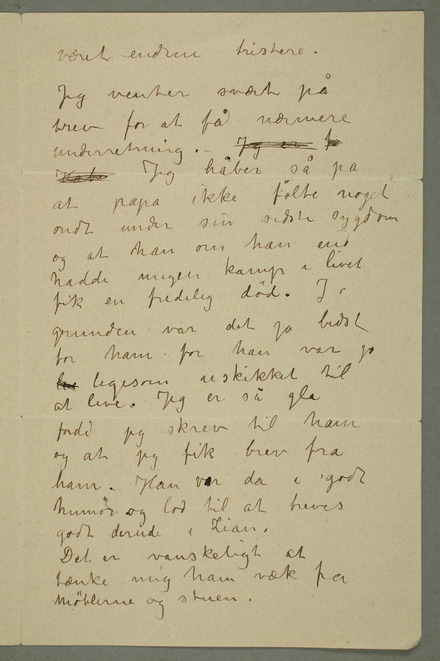 været endnu tristere.
Jeg venter svært på
brev for at få nærmere
underretning. – Jeg er
Jeg håber så på,
at papa ikke følte noget
ondt under sin sidste sygdom
og at han om han end
hadde megen kamp i livet
fik en fredelig død. I
grunden var det jo bedst
for ham for han var jo
ligesom uskikket til
at live. Jeg er så gla
fordi jeg skrev til ham
og at jeg fik brev fra
ham. Han var da i godt
humør og lod til at treves
godt derude i Lian.
Det er vanskeligt at
tænke mig ham væk fra
møblerne og stuen.